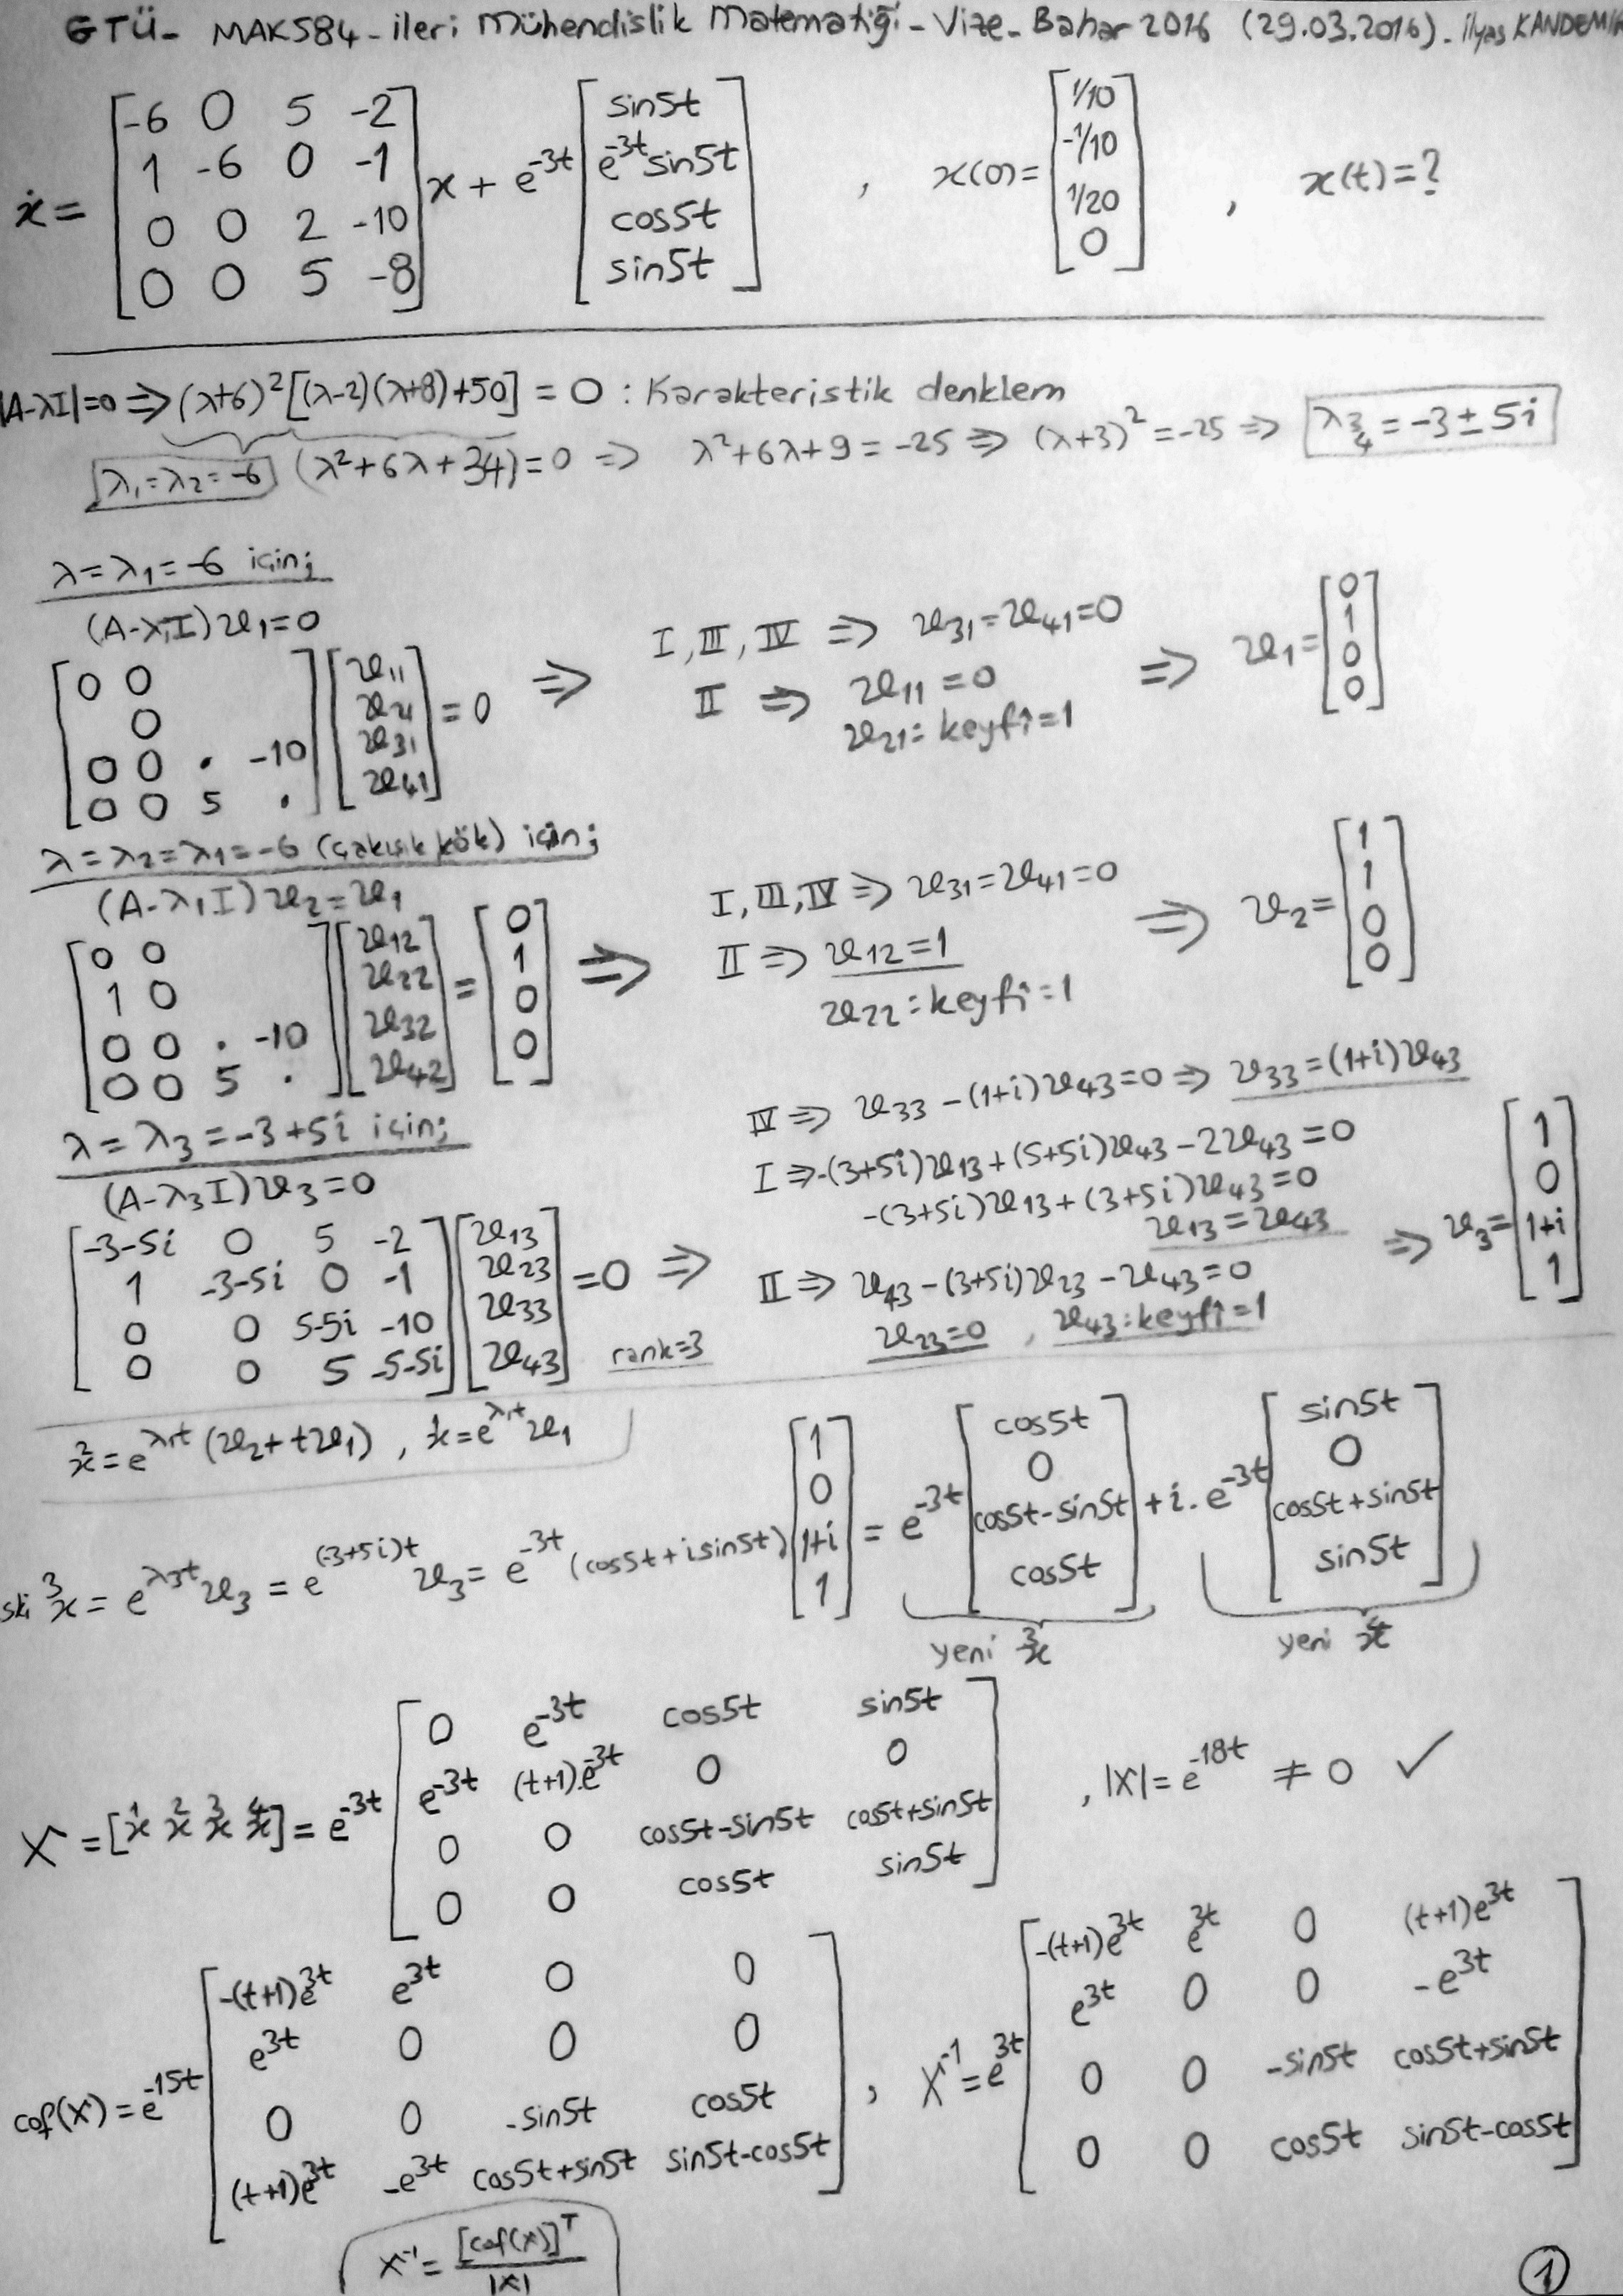 GTÜ- MAK584-ileri Mühendislik Matematiği-Vize-Bahar 2016 (29.03.2016)-ilyas KANDEMİR
ẋ = [-6 0 5 -2; 1 -6 0 -1; 0 0 2 -10; 0 0 5 -8] x + e^-3t [sin5t; e^-3t sin5t; cos5t; sin5t] , x(0)= [1/10; -1/10; 1/20; 0] , x(t)=?
|A-λI|=0 ⇒ (λ+6)^2[(λ-2)(λ+8)+50] = 0 : Karakteristik denklem
λ1=λ2=-6 (λ^2+6λ+34)=0 ⇒ λ^2+6λ+9 = -25 ⇒ (λ+3)^2=-25 ⇒ λ3,4 = -3±5i
λ=λ1=-6 için;
(A-λ1I)u1=0
[0 0; 0; 0 0 . -10; 0 0 5 .] [u11; u21; u31; u41] = 0 ⇒
I, III, IV ⇒ u31=u41=0
II ⇒ u11=0
u21= keyfi=1
⇒ u1= [0; 1; 0; 0]
λ=λ2=λ1=-6 (çakışık kök) için;
(A-λ1I)u2=u1
[0 0; 1 0; 0 0 . -10; 0 0 5 .] [u12; u22; u32; u42] = [0; 1; 0; 0] ⇒
I, III, IV ⇒ u31=u41=0
II ⇒ u12=1
u22=keyfi=1
⇒ u2= [1; 1; 0; 0]
λ=λ3=-3+5i için;
(A-λ3I)u3=0
[-3-5i 0 5 -2; 1 -3-5i 0 -1; 0 0 5-5i -10; 0 0 5 -5-5i] [u13; u23; u33; u43] =0 ⇒ rank=3
IV ⇒ u33-(1+i)u43=0 ⇒ u33=(1+i)u43
I ⇒ -(3+5i)u13+(5+5i)u43-2u43=0
-(3+5i)u13+(3+5i)u43=0
u13=u43
II ⇒ u43-(3+5i)u23-u43=0
u23=0 , u43:keyfi=1
⇒ u3= [1; 0; 1+i; 1]
²x=e^λ1t (u2+tu1) , ¹x=e^λ1t u1
eski ³x = e^λ3t u3 = e^(-3+5i)t u3 = e^-3t (cos5t+isin5t) [1; 0; 1+i; 1] = e^-3t [cos5t; 0; cos5t-sin5t; cos5t] + i.e^-3t [sin5t; 0; cos5t+sin5t; sin5t]
yeni ³x yeni ⁴x
X = [¹x ²x ³x ⁴x] = e^-3t [0 e^-3t cos5t sin5t; e^-3t (t+1).e^-3t 0 0; 0 0 cos5t-sin5t cos5t+sin5t; 0 0 cos5t sin5t] , |X|= e^-18t ≠ 0 ✓
cof(X)=e^-15t [-(t+1)e^3t e^3t 0 0; e^3t 0 0 0; 0 0 -sin5t cos5t; (t+1)e^3t -e^3t cos5t+sin5t sin5t-cos5t] , X^-1=e^3t [-(t+1)e^3t e^3t 0 (t+1)e^3t; e^3t 0 0 -e^3t; 0 0 -sin5t cos5t+sin5t; 0 0 cos5t sin5t-cos5t]
X^-1 = [cof(X)]^T / |X|
1